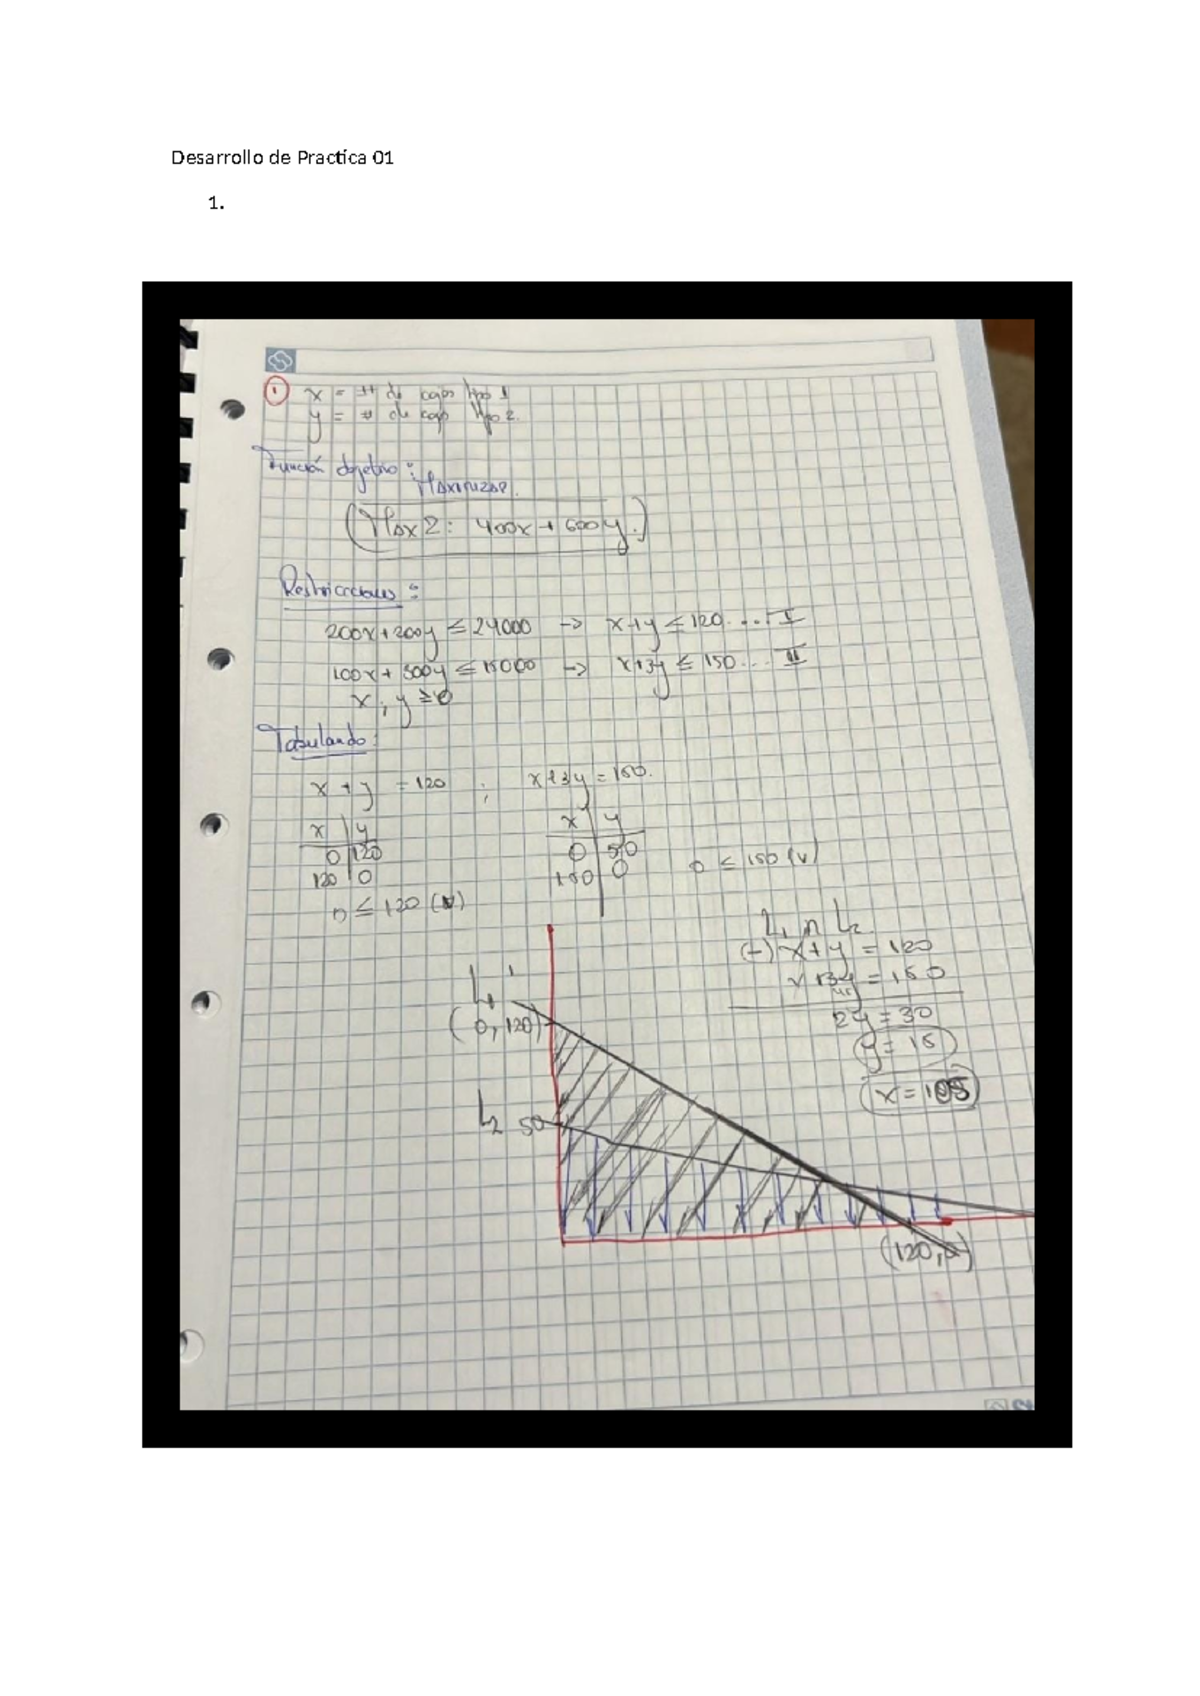 Desarrollo de Practica 01
1.
1 x = # de cajas tipo 1
y = # de caja tipo 2.
Función objetivo: Maximizar.
(Max Z: 400x + 600y.)
Restricciones:
200x + 200y ≤ 24000 → x + y ≤ 120 .... I
100x + 300y ≤ 15000 → x + 3y ≤ 150 ... II
x ; y ≥ 0
Tabulando:
x + y = 120 ; x + 3y = 150.
x | y x | y
0 | 120 0 | 50
120 | 0 150 | 0 0 ≤ 150 (V)
0 ≤ 120 (V)
L1 n L2
(-) x + y = 120
x + 3y = 150
2y = 30
y = 15
x = 105
L1
(0, 120)
L2 50
(120, 0)